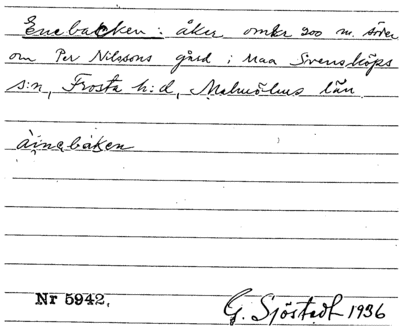 Enebacken: åker omkr 200 m. söder
om Per Nilssons gård i Maa Svensköps
s:n, Frosta h:d, Malmöhus län
àinabàken
Nr 5942.
G. Sjöstedt 1936